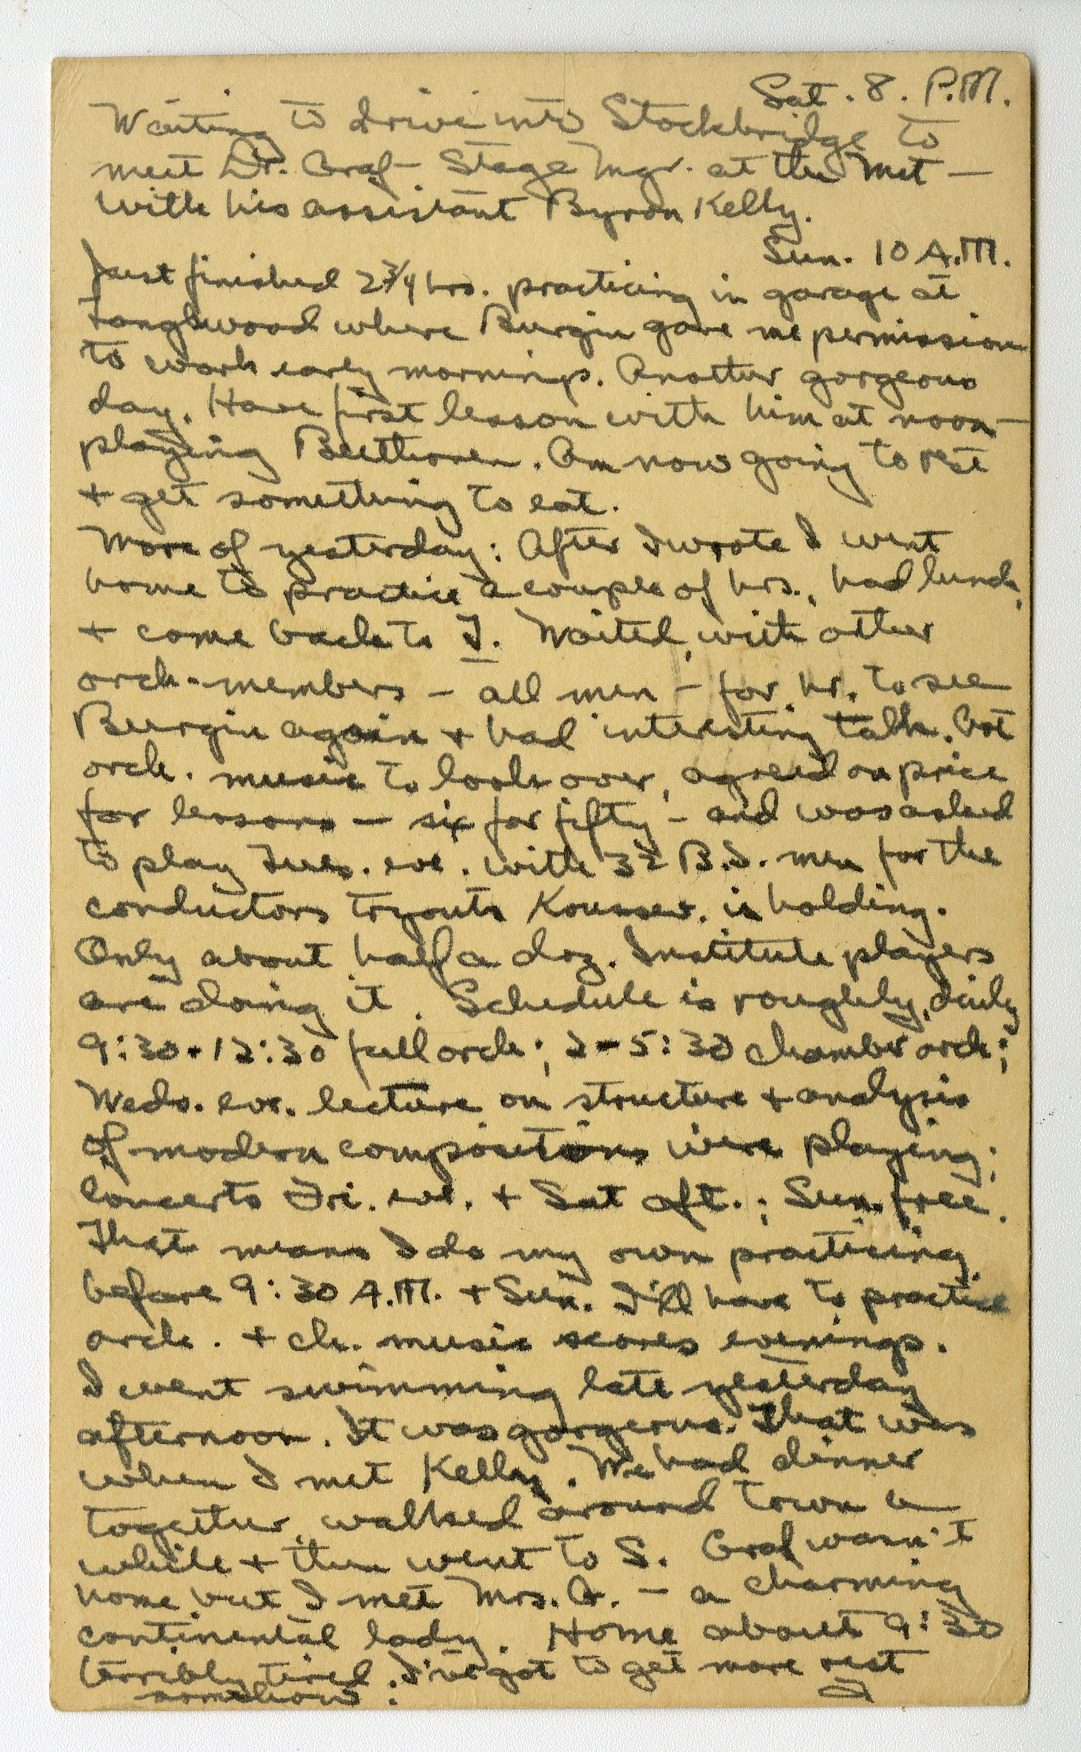 Sat. 8. P.M.
Waiting to drive into Stockbridge to
meet Dr. Graf - Stage Mgr. at the Met -
with his assistant Byron Kelly.
Sun. 10 A.M.
Just finished 2 3/4 hrs. practicing in garage at
Tanglewood where Burgin gave me permission
to work early mornings. Another gorgeous
day. Have first lesson with him at noon -
playing Beethoven. Am now going to rest
+ get something to eat.
More of yesterday: After I wrote I went
home to practice a couple of hrs., had lunch,
+ come back to T. Waited, with other
orch. members - all men - for hr. to see
Burgin again + had interesting talk. Got
orch. music to look over, agreed on price
for lessons - six for fifty - and was asked
to play Tues. eve. with 32 B.S. men for the
conductors tryouts Koussev. is holding.
Only about half a doz. Institute players
are doing it. Schedule is roughly, daily
9:30-12:30 full orch.; 2-5:30 chamber orch.;
Weds. eve. lecture on structure + analysis
of modern compositions we're playing;
Concerts Fri. eve. + Sat aft.; Sun. free.
That means I do my own practicing
before 9:30 A.M. + Sun. I'll have to practice
orch. + ch. music scores evenings.
I went swimming late yesterday
afternoon. It was gorgeous. That was
when I met Kelly. We had dinner
together, walked around town a
while + then went to S. Graf wasn't
home but I met Mrs. G. - a charming
continental lady. Home about 9:30
terribly tired. I've got to get more rest
somehow.